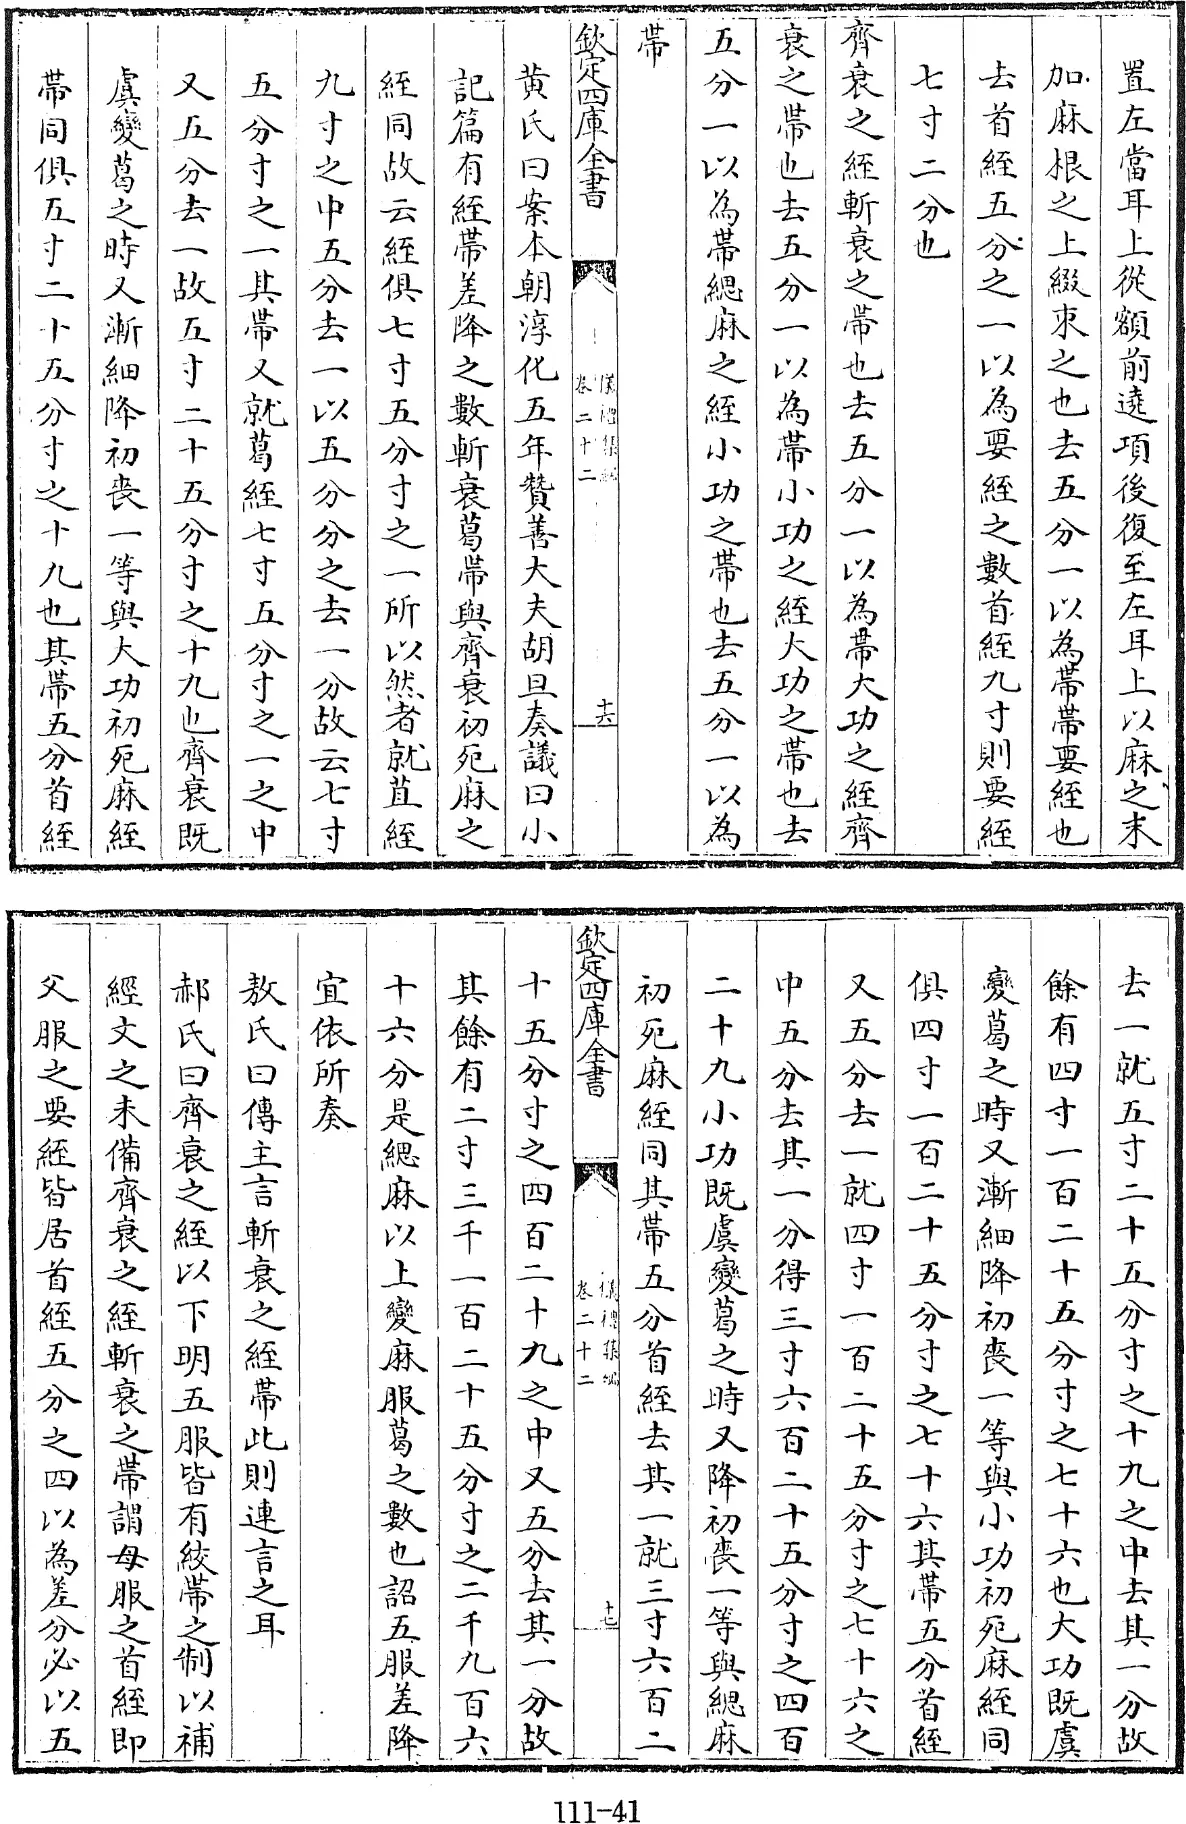 置左當耳上從額前遶項後復至左耳上以麻之末
加麻根之上綴束之也去五分一以為帶帶要絰也
去首絰五分之一以為要絰之數首絰九寸則要絰
七寸二分也
齊衰之絰斬衰之帶也去五分一以為帶大功之絰齊
衰之帶也去五分一以為帶小功之絰大功之帶也去
五分一以為帶緦麻之絰小功之帶也去五分一以為
帶
欽定四庫全書
儀禮集編
卷二十二
十六
黄氏曰案本朝淳化五年贊善大夫胡旦奏議曰小
記篇有絰帶差降之數斬衰葛帶與齊衰初死麻之
絰同故云絰俱七寸五分寸之一所以然者就苴絰
九寸之中五分去一以五分分之去一分故云七寸
五分寸之一其帶又就葛絰七寸五分寸之一之中
又五分去一故五寸二十五分寸之十九也齊衰既
虞變葛之時又漸細降初喪一等與大功初死麻絰
帶同俱五寸二十五分寸之十九也其帶五分首絰
去一就五寸二十五分寸之十九之中去其一分故
餘有四寸一百二十五分寸之七十六也大功既虞
變葛之時又漸細降初喪一等與小功初死麻絰同
俱四寸一百二十五分寸之七十六其帶五分首絰
又五分去一就四寸一百二十五分寸之七十六之
中五分去其一分得三寸六百二十五分寸之四百
二十九小功既虞變葛之時又降初喪一等與緦麻
初死麻絰同其帶五分首絰去其一就三寸六百二
欽定四庫全書
儀禮集編
卷二十二
十七
十五分寸之四百二十九之中又五分去其一分故
其餘有二寸三千一百二十五分寸之二千九百六
十六分是緦麻以上變麻服葛之數也詔五服差降
宜依所奏
敖氏曰傳主言斬衰之絰帶此則連言之耳
郝氏曰齊衰之絰以下明五服皆有絞帶之制以補
經文之未備齊衰之絰斬衰之帶謂母服之首絰即
父服之要絰皆居首絰五分之四以為差分必以五
111-41